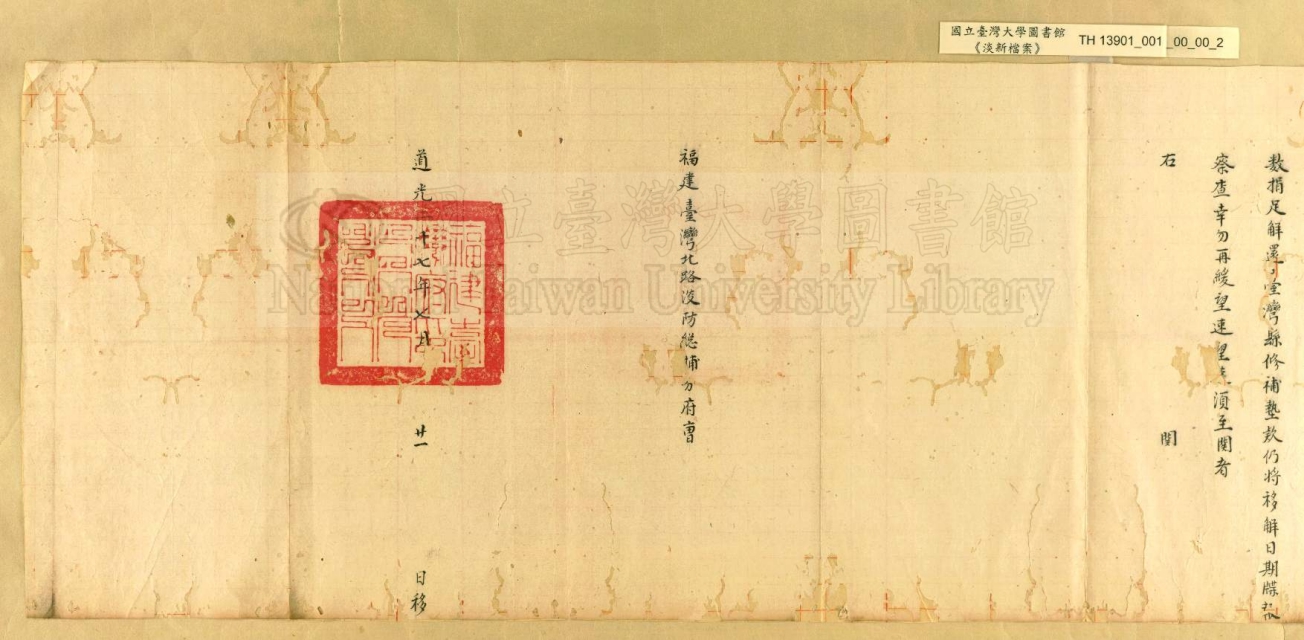 國立臺灣大學圖書館
《淡新檔案》 TH 13901_001_00_00_2
數捐足解還臺灣縣修補墊款仍將移解日期牒報
察查幸勿再緩望速望速須至關者
右 關
福建臺灣北路淡防總捕分府曹
道光二十七年七月 廿一 日移
國立臺灣大學圖書館
National Taiwan University Library